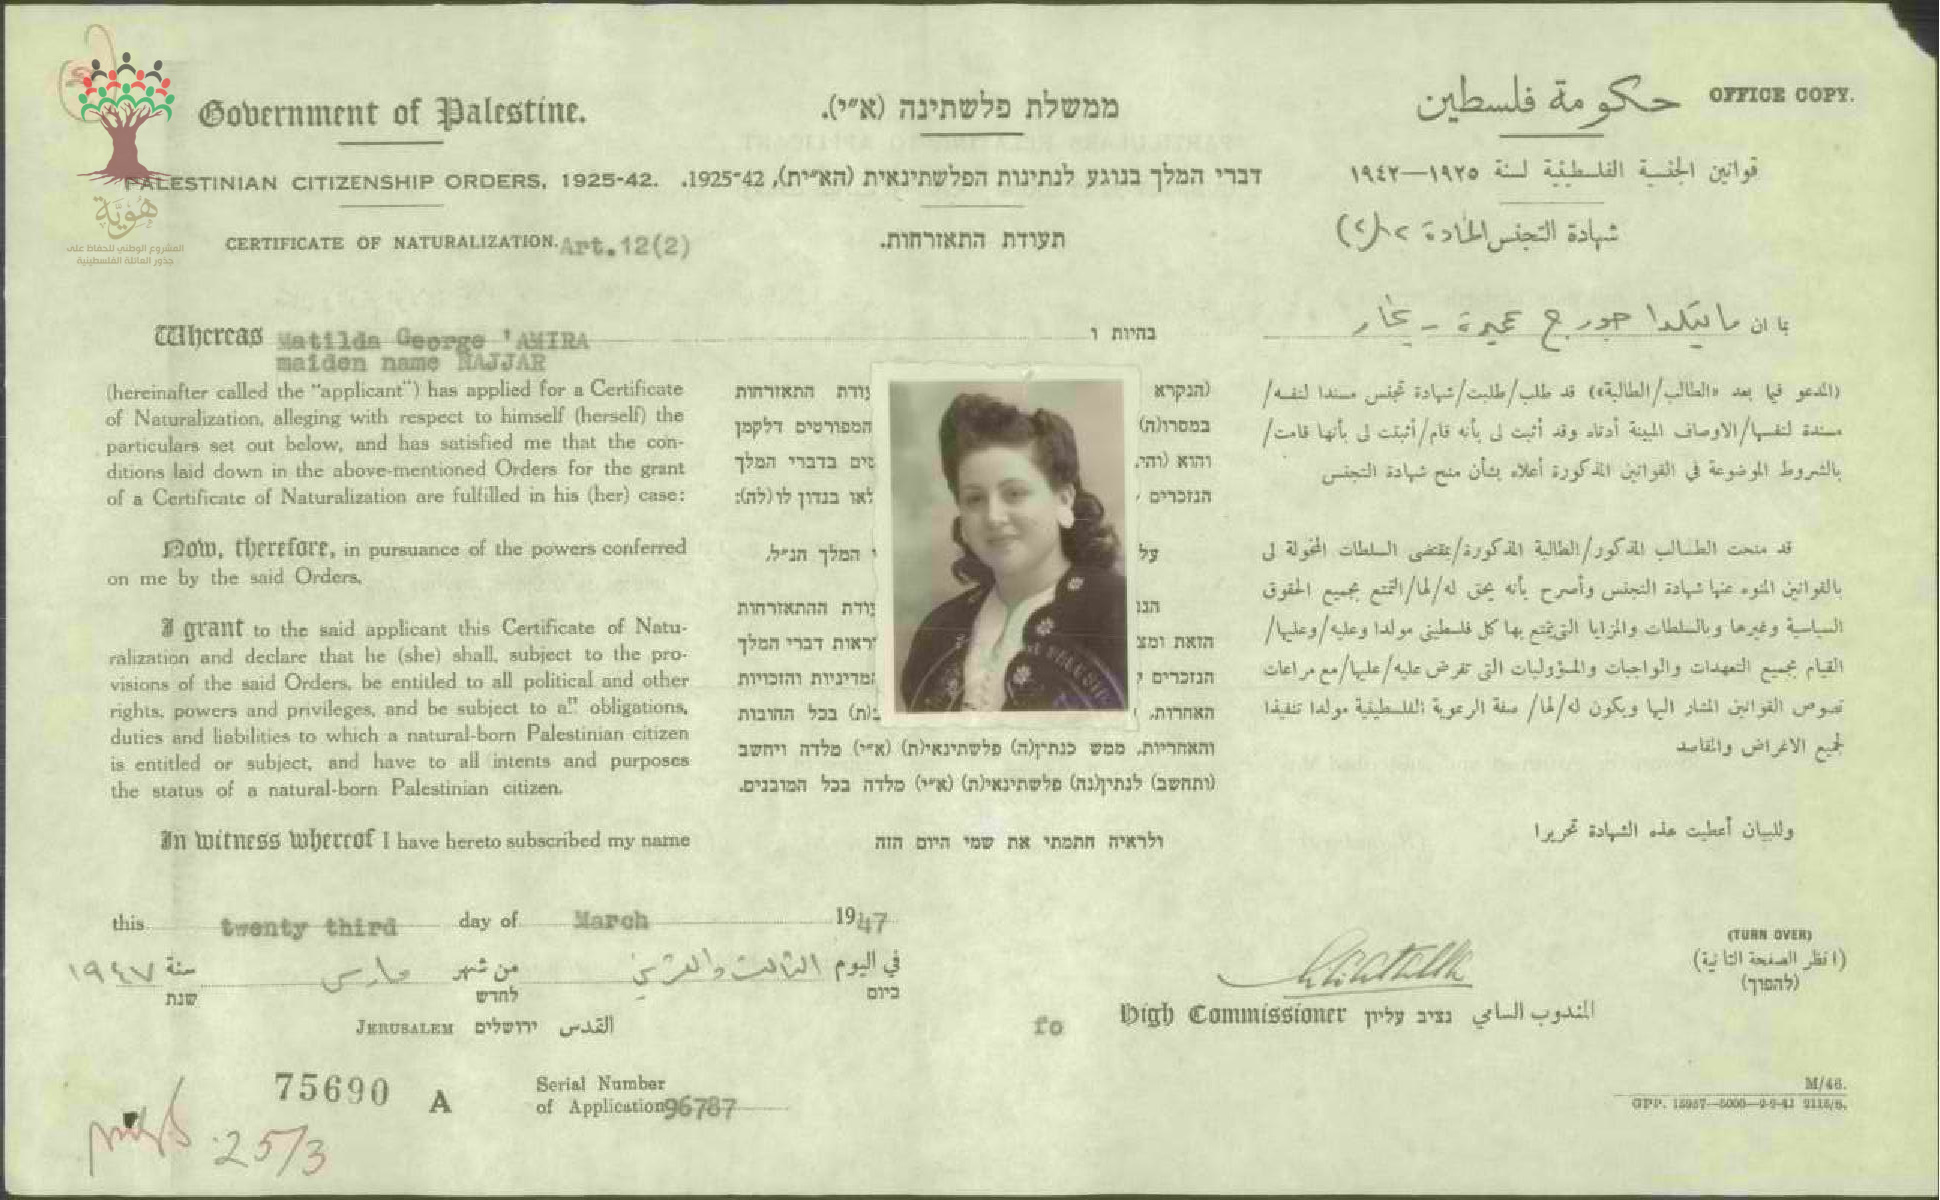 Government of Palestine.
PALESTINIAN CITIZENSHIP ORDERS, 1925-42.
CERTIFICATE OF NATURALIZATION. Art.12(2)
ממשלת פלשתינה (א״י).
דברי המלך בנוגע לנתינות הפלשתינאית (הא״ית), 1925-42.
תעודת התאזרחות.
OFFICE COPY.
حكومة فلسطين
قوانين الجنسية الفلسطينية لسنة ١٩٢٥—١٩٤٢
شهادة التجنس المادة ١٢(٢)
هُوِيَّة
المشروع الوطني للحفاظ على
جذور العائلة الفلسطينية
Whereas Matilda George 'AMIRA
maiden name HAJJAR
(hereinafter called the "applicant") has applied for a Certificate
of Naturalization, alleging with respect to himself (herself) the
particulars set out below, and has satisfied me that the con-
ditions laid down in the above-mentioned Orders for the grant
of a Certificate of Naturalization are fulfilled in his (her) case:
Now, therefore, in pursuance of the powers conferred
on me by the said Orders,
I grant to the said applicant this Certificate of Natu-
ralization and declare that he (she) shall, subject to the pro-
visions of the said Orders, be entitled to all political and other
rights, powers and privileges, and be subject to all obligations,
duties and liabilities to which a natural-born Palestinian citizen
is entitled or subject, and have to all intents and purposes
the status of a natural-born Palestinian citizen.
In witness whereof I have hereto subscribed my name
בהיות ו
(הנקרא
תעודת התאזרחות
במסרו(ה)
המפורטים דלקמן
והוא (והי
בדברי המלך
הנזכרים
לאו בנדון לו (לה):
על
המלך הנ״ל,
תעודת ההתאזרחות
הזאת ומצ
הוראות דברי המלך
הנזכרים
המדיניות והזכויות
האחרות,
בכל החובות
והאחריות, ממש כנתין(ה) פלשתינאי(ת) (א״י) מלדה ויחשב
(ותחשב) לנתין(נה) פלשתינאי(ת) (א״י) מלדה בכל המובנים.
ולראיה חתמתי את שמי היום הזה
بما ان ماتيلدا جورج عميرة - حجار
(المدعو فيما بعد «الطالب/الطالبة») قد طلب/طلبت/شهادة تجنس مسندا لنفسه/
مسندة لنفسها/الاوصاف المبينة أدناه وقد أثبت لى بأنه قام/أثبتت لى بأنها قامت/
بالشروط الموضوعة في القوانين المذكورة أعلاه بشأن منح شهادة التجنس
قد منحت الطالب المذكور/الطالبة المذكورة/بمقتضى السلطات المخولة لى
بالقوانين المنوه عنها شهادة التجنس وأصرح بأنه يحق له/لها/التمتع بجميع الحقوق
السياسية وغيرها وبالسلطات والمزايا التي يتمتع بها كل فلسطيني مولدا وعليه/وعليها/
القيام بجميع التعهدات والواجبات والمسؤوليات التى تفرض عليه/عليها/مع مراعات
نصوص القوانين المشار اليها ويكون له/لها/ صفة الرعوية الفلسطينية مولدا تنفيذا
لجميع الاغراض والمقاصد
وللبيان أعطيت هذه الشهادة تحريرا
this twenty third day of March 1947
في اليوم الثالث والعشرين من شهر مارس سنة ١٩٤٧
ביום לחדש שנת
JERUSALEM ירושלים القدس
(TURN OVER)
(انظر الصفحة الثانية)
(להפוך)
fo High Commissioner נציב עליון المندوب السامي
75690 A
Serial Number
of Application 96787
25/3
M/46.